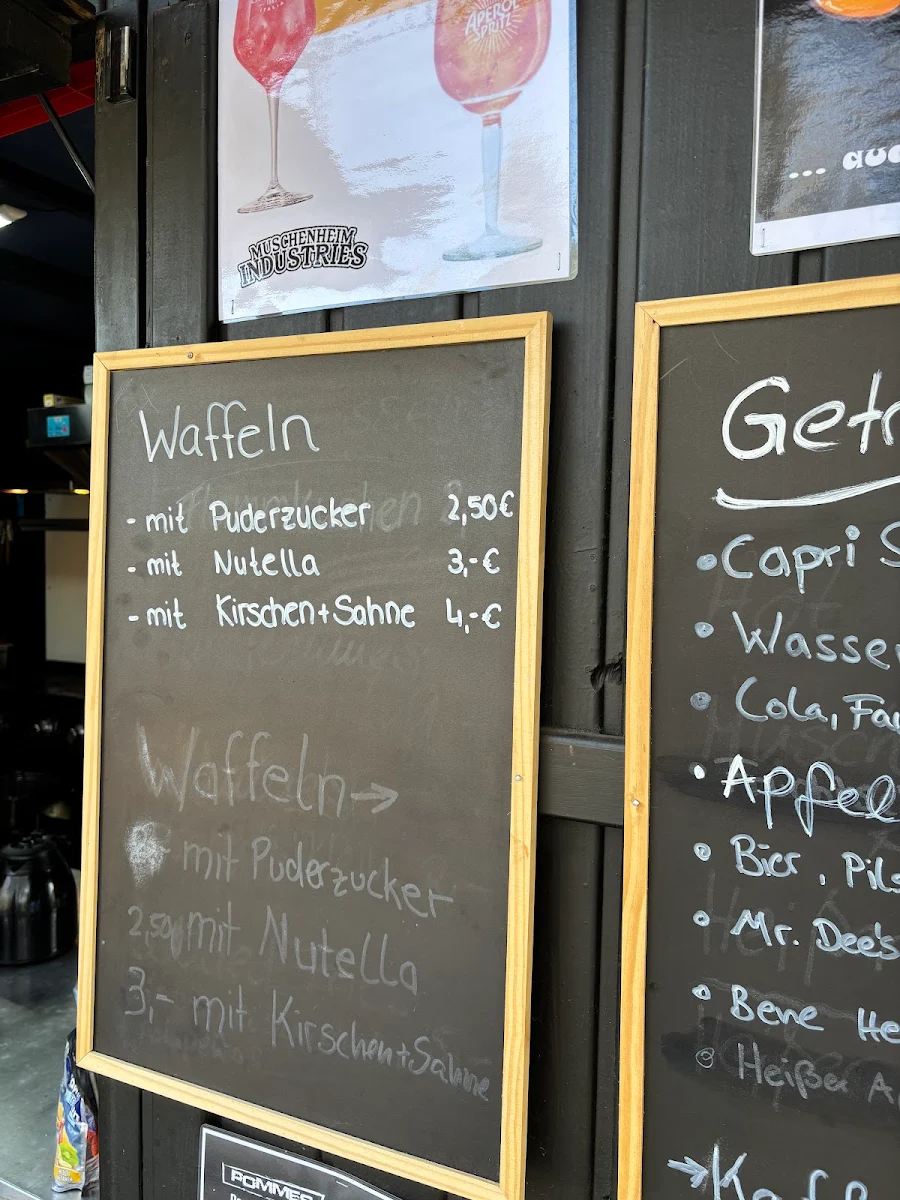 APEROL
SPRITZ
MUSCHENHEIM
INDUSTRIES
...
Waffeln
- mit Puderzucker 2,50€
- mit Nutella 3,-€
- mit Kirschen+Sahne 4,-€
Waffeln→
mit Puderzucker
2,50 mit Nutella
3,- mit Kirschen+Sahne
POMMES
Getr
• Capri S
• Wasser
• Cola, Fa
• Apfel
• Bier, Pils
• Mr. Dee's
• Bene He
Heißer A
→ Kaf